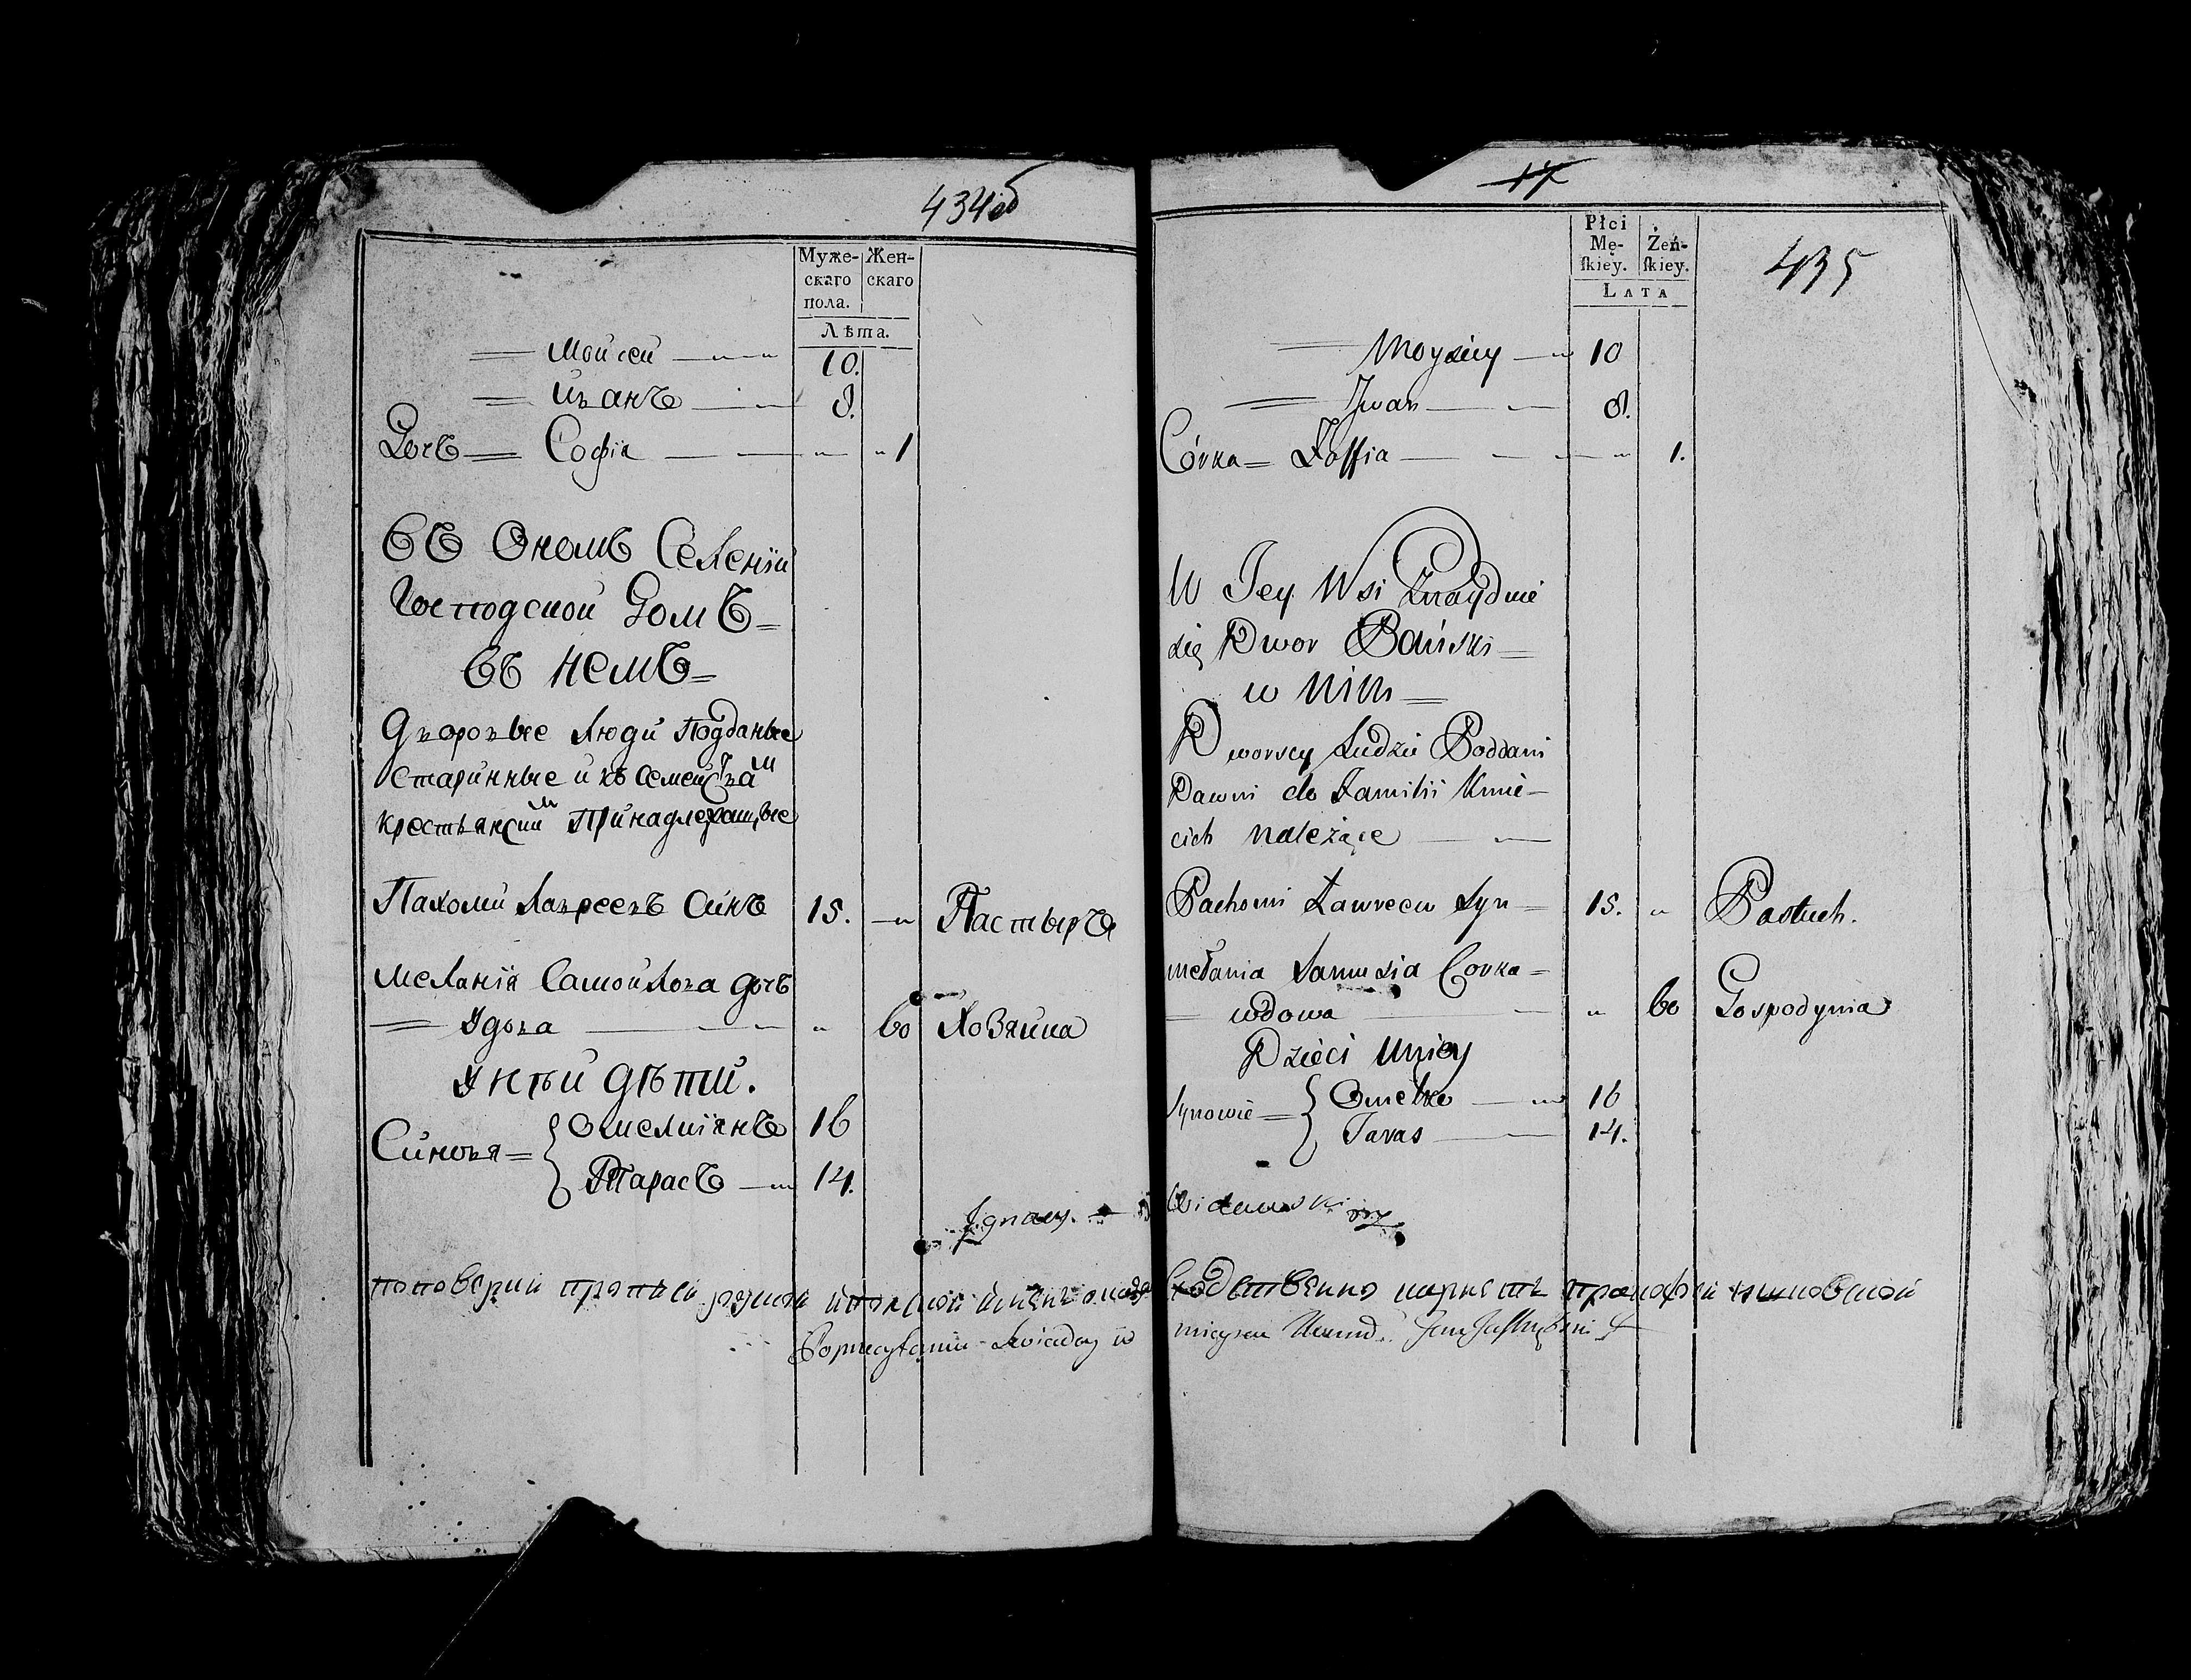 434об
Муже-
скаго
пола.
Жен-
скаго
Лѣта.
= Мойсей — 10.
= Иванъ — 8.
Дочь = Софія — " 1
Въ Ономъ Селеніи
Господской Домъ =
въ немъ =
Дворовые Люди Подданые
Старинные и къ Семействам
крестьянским Принадлежащые
Пахомій Лавреевъ Синъ 15. — " Пастырь
Меланія Самойлова дочь
= Удова — " 60 Хозяйка
У ней дѣти.
Синовья = { Омеліянъ 16
Тарасъ — 14.
17
Płci
Mę-
skiey.
Żeń-
skiey.
LATA
435
= Moysiey — 10
= Jwan — 8.
Córka = Zoffia — " 1.
W Jey Wsi Znayduie
się Dwor Pański =
w Nim =
Dworscy Ludzie Poddani
Dawni do Familii Kmie-
cich należące —
Pachomi Ławreow Syn = 15. " Pastuch.
Mełania Samusia Corka =
= wdowa — " 60 Gospodynia
Dzieci Uniey
Synowie = { Omelko — 16
Taras — 14.
Ignacy